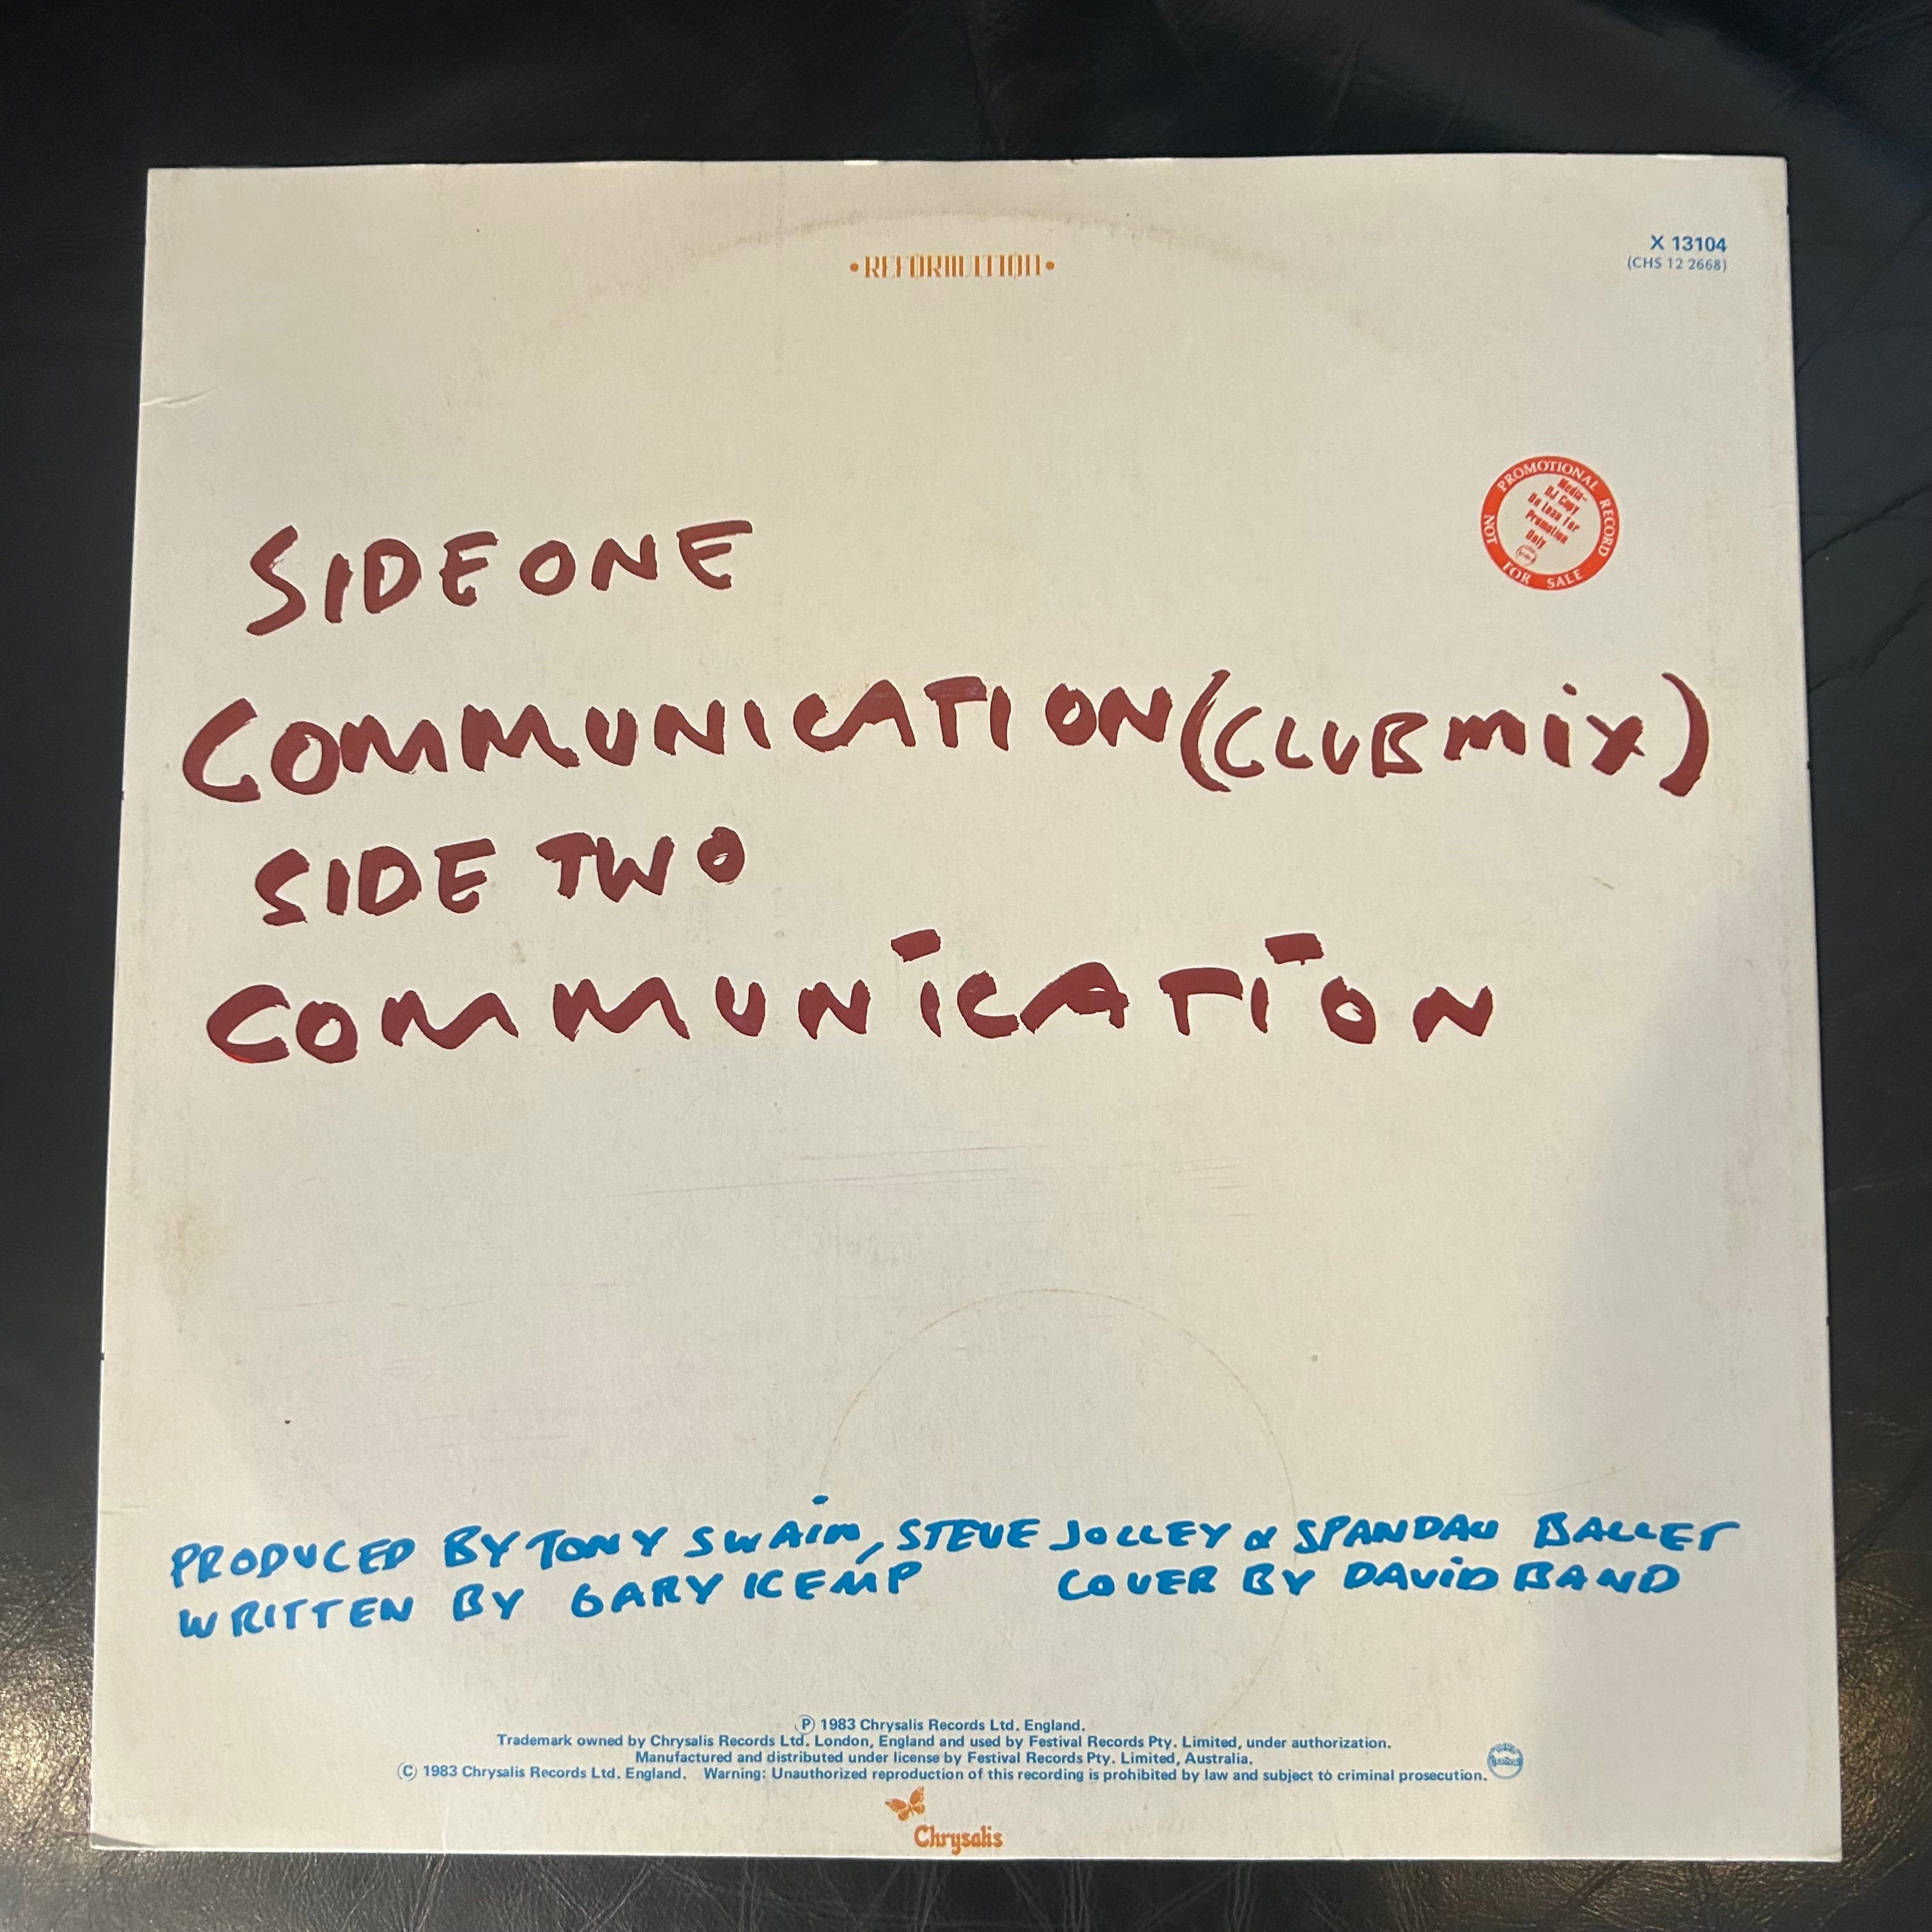 •REFORMATION•
X 13104
(CHS 12 2668)
PROMOTIONAL RECORD
NOT FOR SALE
Media-
DJ Copy
On Loan for
Promotion
Only
SIDE ONE
COMMUNICATION (CLUB mix)
SIDE TWO
COMMUNiCATiON
PRODUCED BY TONY SWAin, STEVE JOLLEY & SPANDAU BALLET
WRITTEN BY GARY KEMP COVER BY DAViD BAND
Ⓟ 1983 Chrysalis Records Ltd. England.
Trademark owned by Chrysalis Records Ltd. London, England and used by Festival Records Pty. Limited, under authorization.
Manufactured and distributed under license by Festival Records Pty. Limited, Australia.
Ⓒ 1983 Chrysalis Records Ltd. England. Warning: Unauthorized reproduction of this recording is prohibited by law and subject to criminal prosecution.
Chrysalis